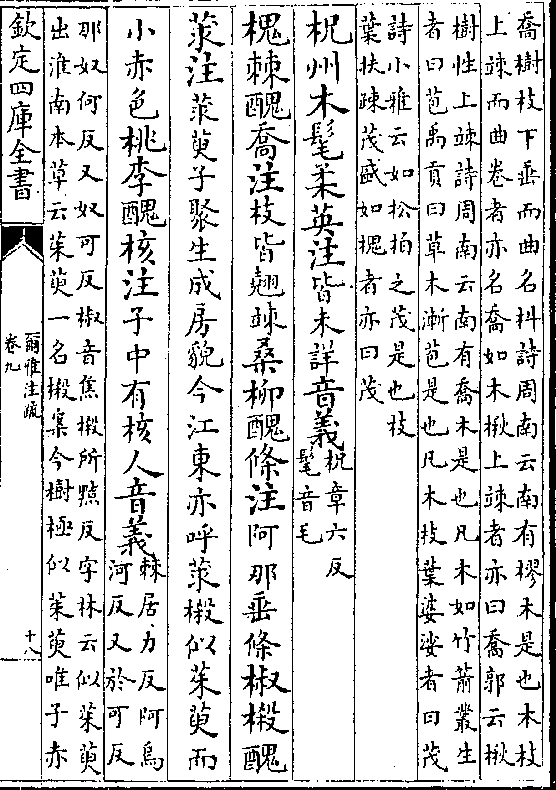 喬樹枝下垂而曲名朻詩周南云南有樛木是也木枝
上竦而曲卷者亦名喬如木楸上竦者亦曰喬郭云楸
樹性上竦詩周南云南有喬木是也凡木如竹箭叢生
者曰苞禹貢曰草木漸苞是也凡木枝葉婆娑者曰茂
詩小雅云如松柏之茂是也枝
葉扶疎茂盛如槐者亦曰茂
柷州木髦柔英注皆未詳音義柷章六反
髦音毛
槐棘醜喬注枝皆翹竦桑柳醜條注阿那垂條椒樧醜
莍注莍萸子聚生成房貌今江東亦呼莍樧似茱萸而
小赤色桃李醜核注子中有核人音義棘居力反阿烏
河反又於可反
那奴何反又奴可反椒音焦樧所黠反字林云似茱萸
出淮南本草云茱萸一名樧案今樹極似茱萸唯子赤
欽定四庫全書
爾雅注疏
卷九
十八